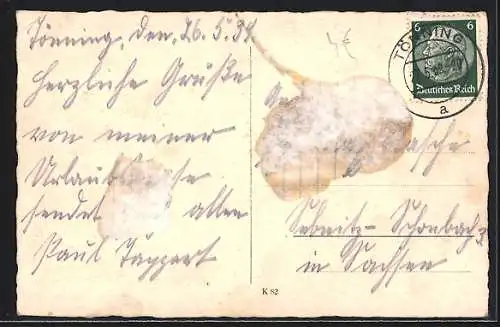 Tönning, den 26.5.34
Herzliche Grüße
von meiner
Urlaubs
sendet allen
Paul Tappert
4€
6 6
Deutsches Reich
TÖNNING
a
Sebnitz-Schönbach
in Sachsen
K 82